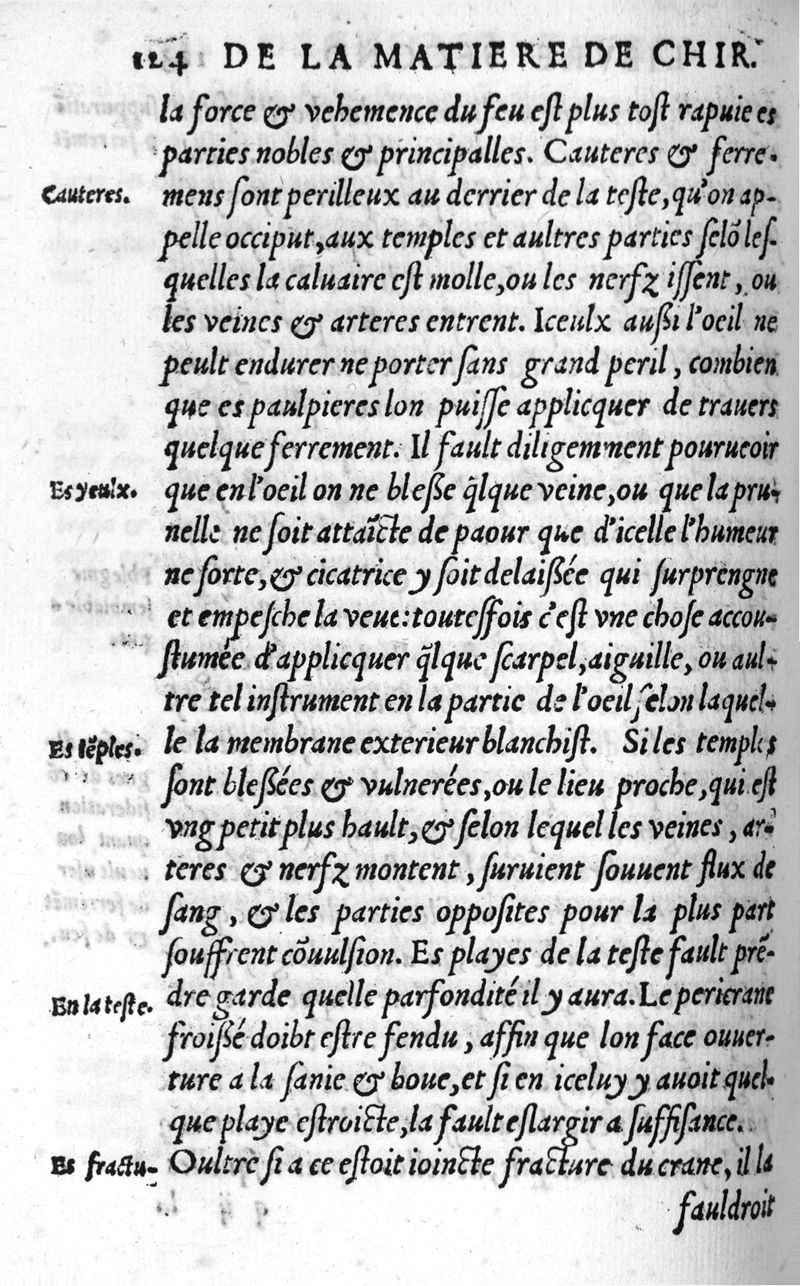 124 DE LA MATIERE DE CHIR.
la force & vehemence du feu eſt plus toſt rapuie es
parties nobles & principalles. Cauteres & ferre-
Cauteres. mens ſont perilleux au derrier de la teſte, qu'on ap-
pelle occiput, aux temples et aultres parties ſelõ leſ-
quelles la caluaire eſt molle, ou les nerfz iſſent, ou
les veines & arteres entrent. Iceulx auſſi l'oeil ne
peult endurer ne porter ſans grand peril, combien
que es paulpieres lon puiſſe applicquer de trauers
quelque ferrement. Il fault diligemment pourueoir
Es yeulx. que en l'oeil on ne bleſſe q̃lque veine, ou que la pru-
nelle ne ſoit attaĩcte de paour que d'icelle l'humeur
ne ſorte, & cicatrice y ſoit delaiſſée qui ſurprengne
et empeſche la veue: touteſfois c'eſt vne choſe accou-
ſtumée d'applicquer q̃lque ſcarpel, aiguille, ou aul-
tre tel inſtrument en la partie de l'oeil ſelon laquel-
Es tẽples. le la membrane exterieur blanchiſt. Si les temples
ſont bleſſées & vulnerées, ou le lieu proche, qui eſt
vng petit plus hault, & ſelon lequel les veines, ar-
teres & nerfz montent, ſuruient ſouuent flux de
ſang, & les parties oppoſites pour la plus part
ſouffrent cõuulſion. Es playes de la teſte fault prẽ-
En la teſte. dre garde quelle parfondité il y aura. Le pericrane
froiſſé doibt eſtre fendu, affin que lon face ouuer-
ture a la ſanie & boue, et ſi en iceluy y auoit quel-
que playe eſtroicte, la fault eſlargir a ſuffiſance.
Es fractu- Oultre ſi a ce eſtoit ioincte fracture du crane, il la
fauldroit